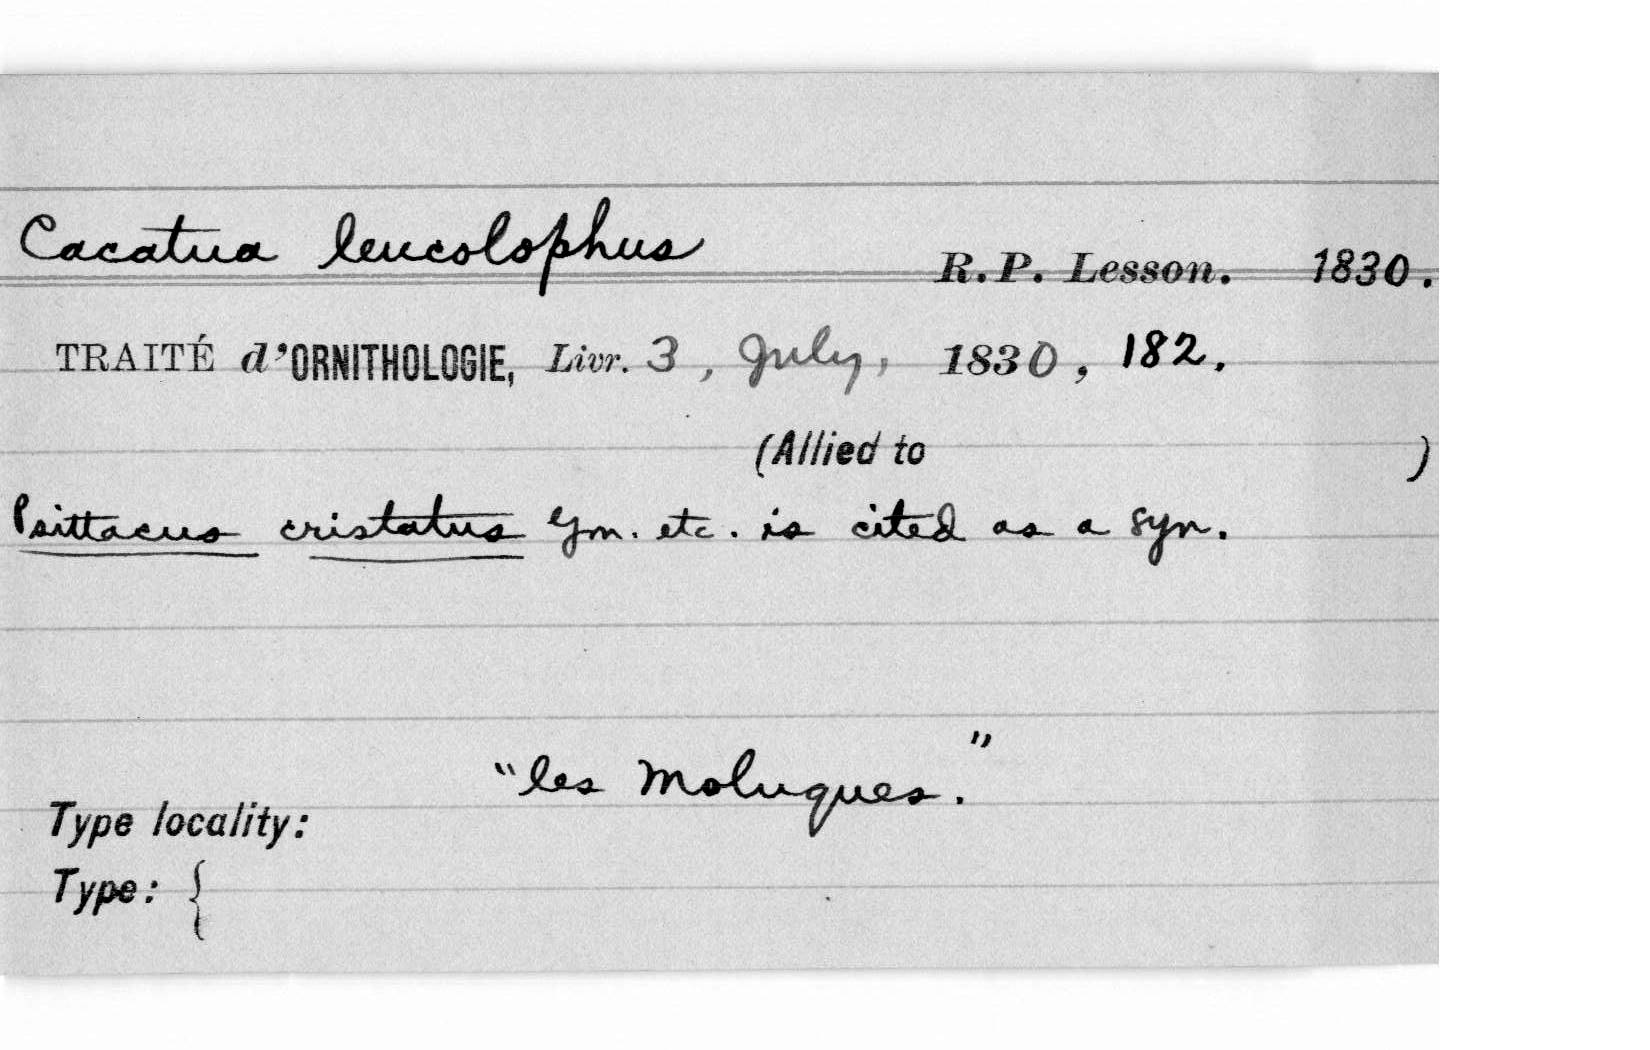 Cacatua leucolophus R.P. Lesson. 1830.
TRAITÉ d'ORNITHOLOGIE, Livr. 3, July, 1830, 182.
(Allied to )
Psittacus cristatus Gm. etc. is cited as a syn.
"les Moluques."
Type locality:
Type: {